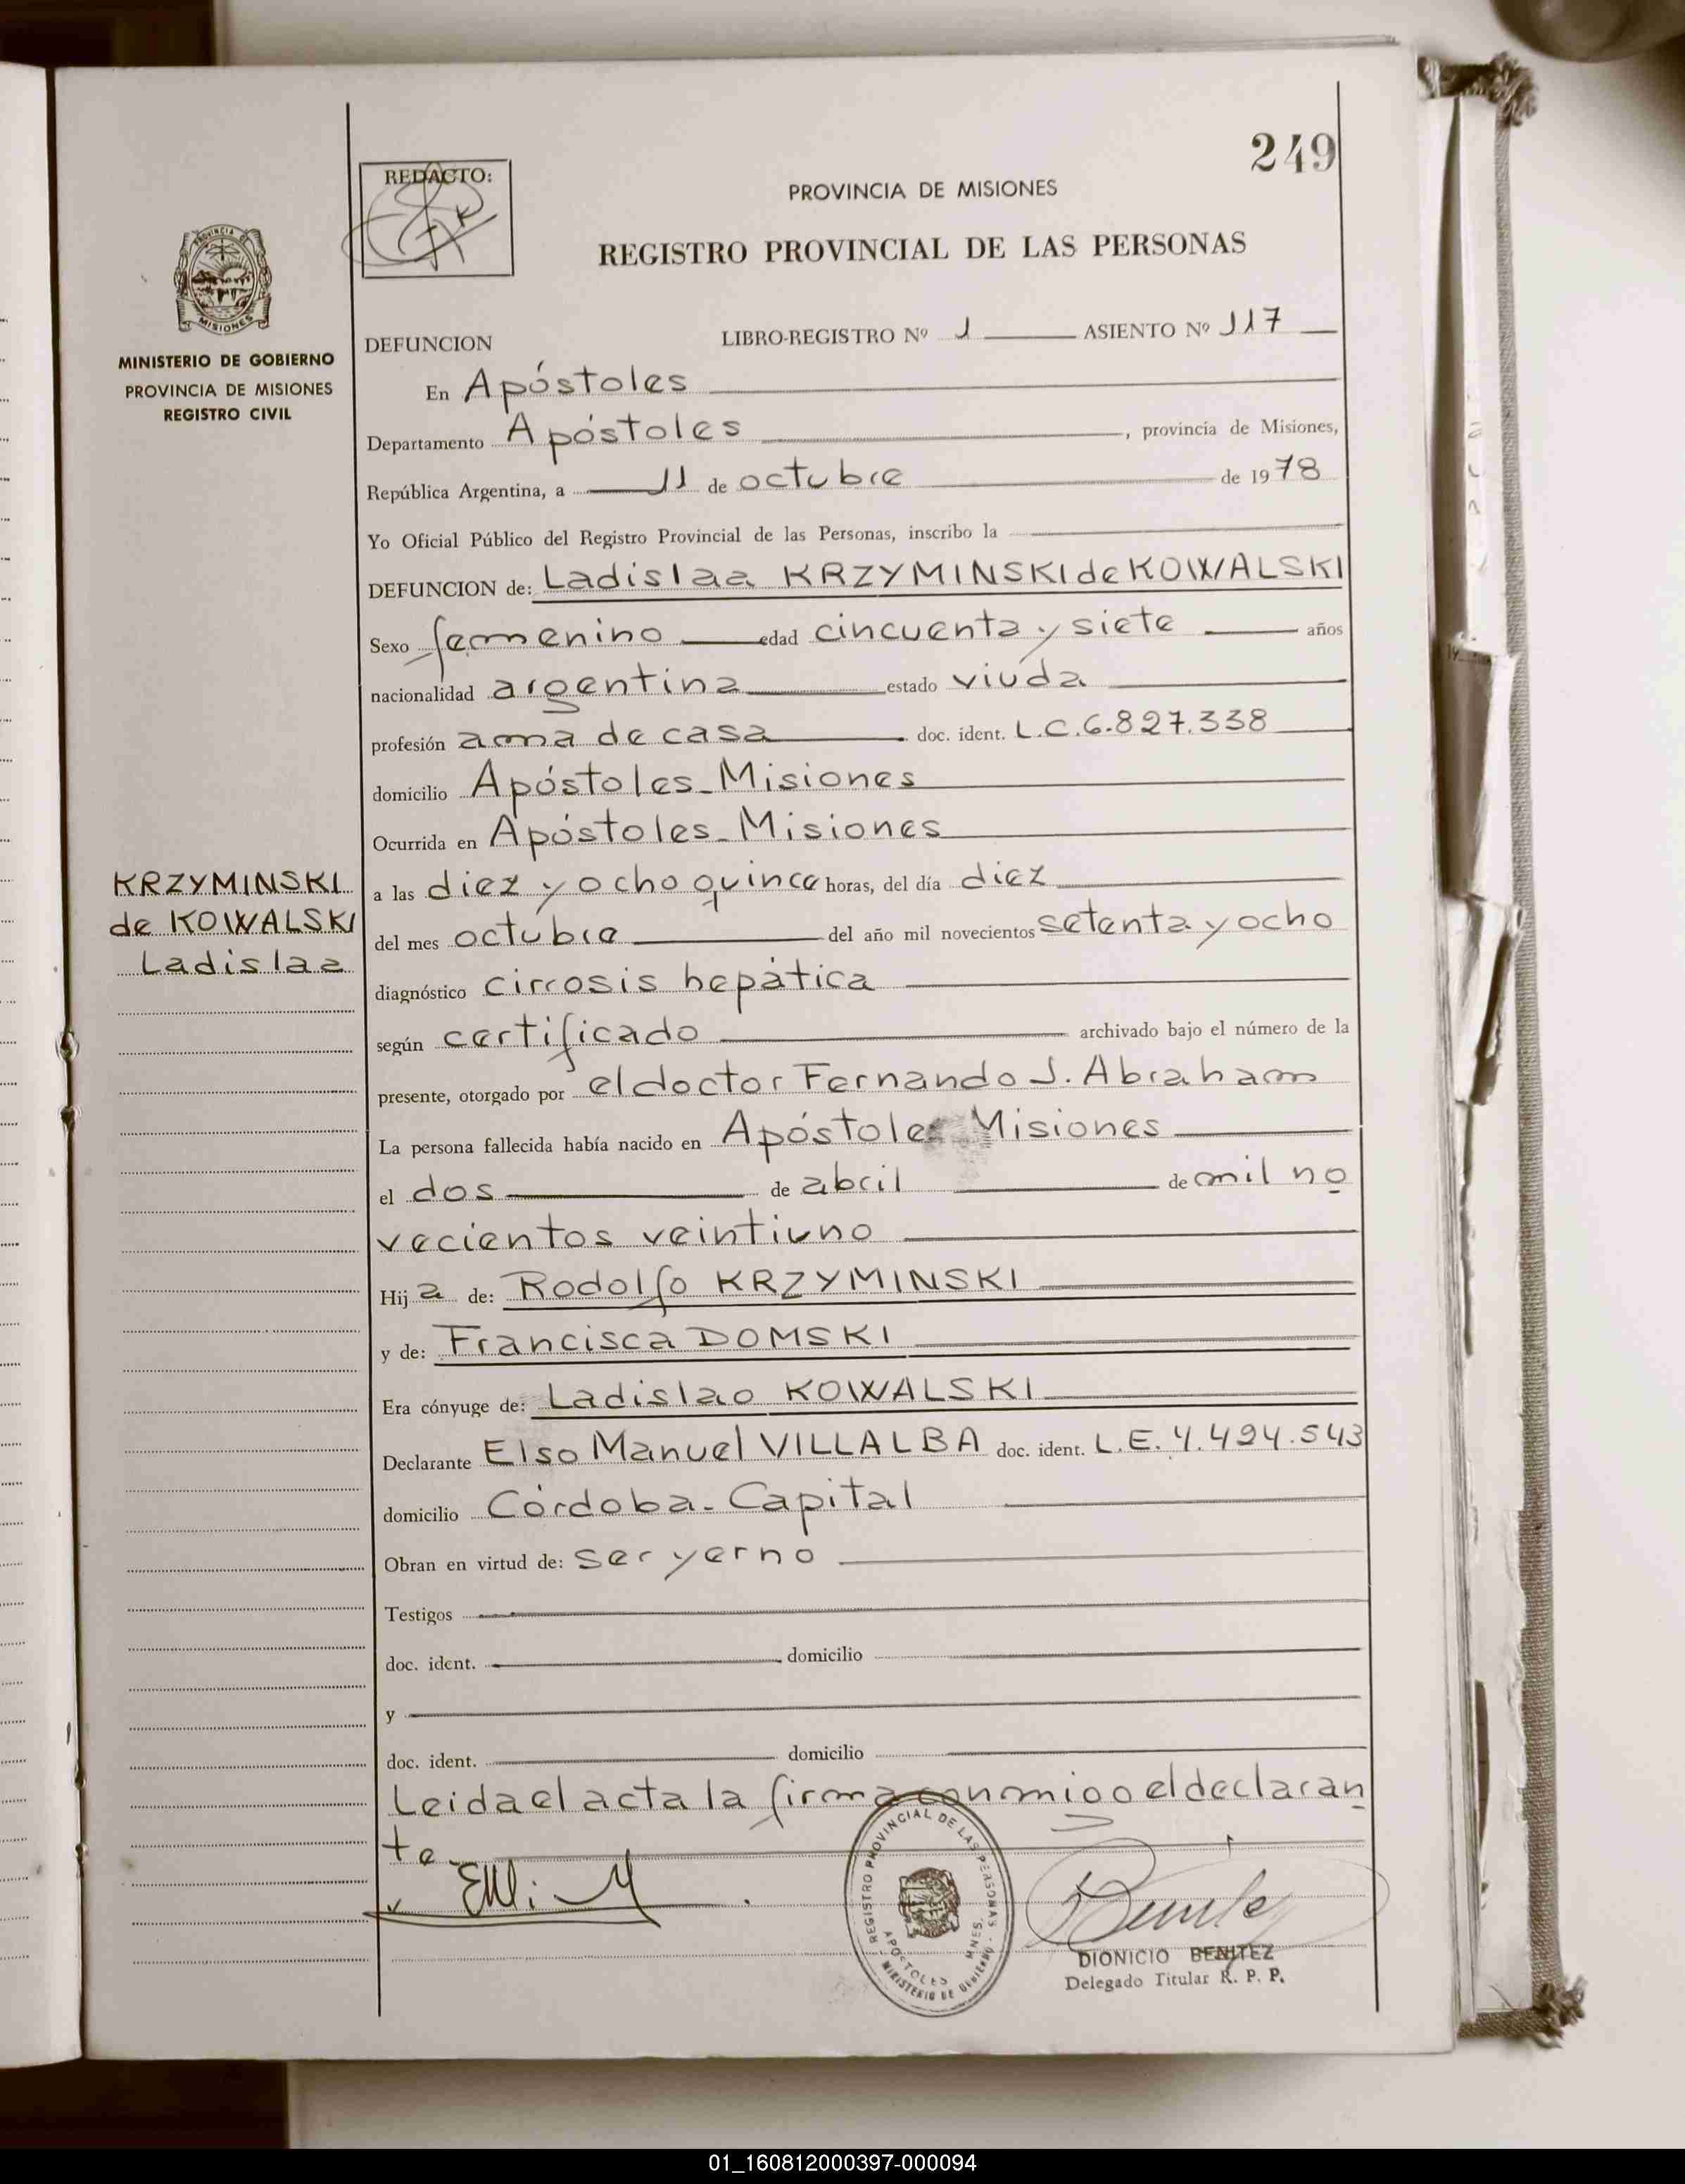 249
REDACTO:
PROVINCIA DE MISIONES
REGISTRO PROVINCIAL DE LAS PERSONAS
PROVINCIA DE
MISIONES
MINISTERIO DE GOBIERNO
PROVINCIA DE MISIONES
REGISTRO CIVIL
DEFUNCION LIBRO-REGISTRO Nº 1 ASIENTO Nº 117
En Apóstoles
Departamento Apóstoles, provincia de Misiones,
República Argentina, a 11 de octubre de 1978
Yo Oficial Público del Registro Provincial de las Personas, inscribo la
DEFUNCION de: Ladislaa KRZYMINSKI de KOWALSKI
Sexo femenino edad cincuenta y siete años
nacionalidad argentina estado viuda
profesión ama de casa doc. ident. L.C.6.827.338
domicilio Apóstoles-Misiones
Ocurrida en Apóstoles-Misiones
KRZYMINSKI
de KOWALSKI
Ladislaa
a las diez y ocho quince horas, del día diez
del mes octubre del año mil novecientos setenta y ocho
diagnóstico cirrosis hepática
según certificado archivado bajo el número de la
presente, otorgado por el doctor Fernando J. Abraham
La persona fallecida había nacido en Apóstoles Misiones
el dos de abril de mil no
vecientos veintiuno
Hij a de: Rodolfo KRZYMINSKI
y de: Francisca DOMSKI
Era cónyuge de: Ladislao KOWALSKI
Declarante Elso Manuel VILLALBA doc. ident. L.E. 4.494.543
domicilio Córdoba-Capital
Obran en virtud de: ser yerno
Testigos
doc. ident. domicilio
y
doc. ident. domicilio
Leida el acta la firma conmigo el declaran
te.
REGISTRO PROVINCIAL DE LAS PERSONAS
APOSTOLES MNES.
MINISTERIO DE GOBIERNO
DIONICIO BENITEZ
Delegado Titular R. P. P.
01_160812000397-000094